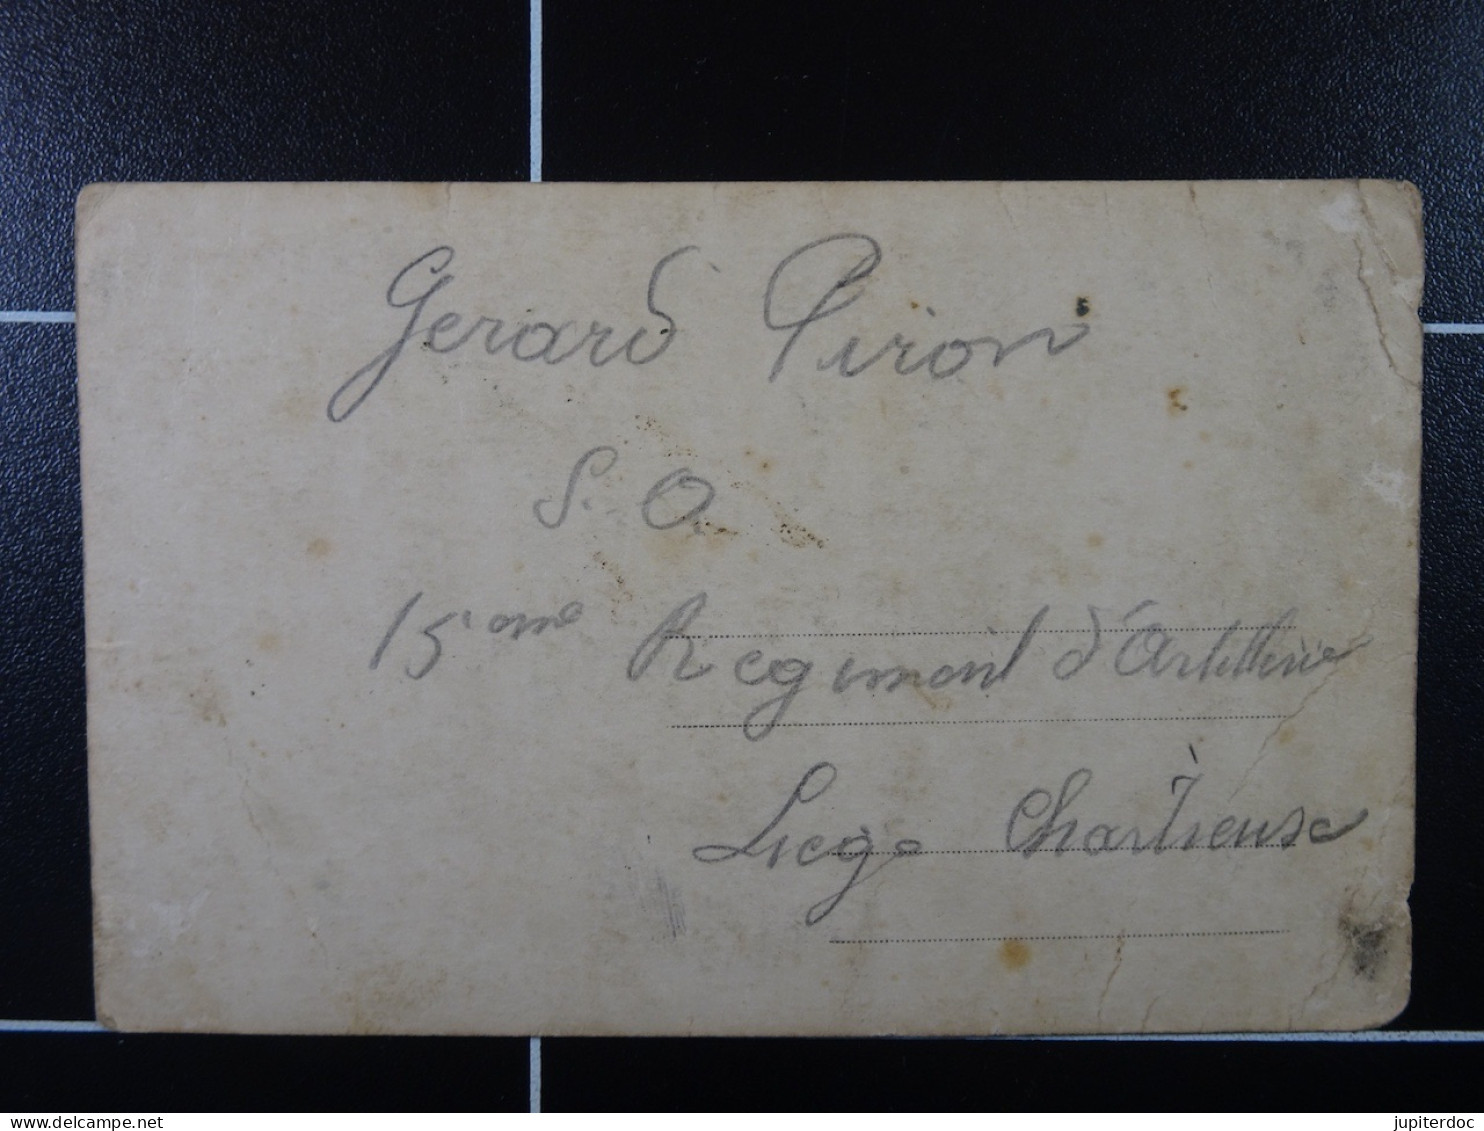 Gerard Piron
S. O.
15eme Regiment d'Artillerie
Liege Chartreuse
delcampe.net
jupiterdoc